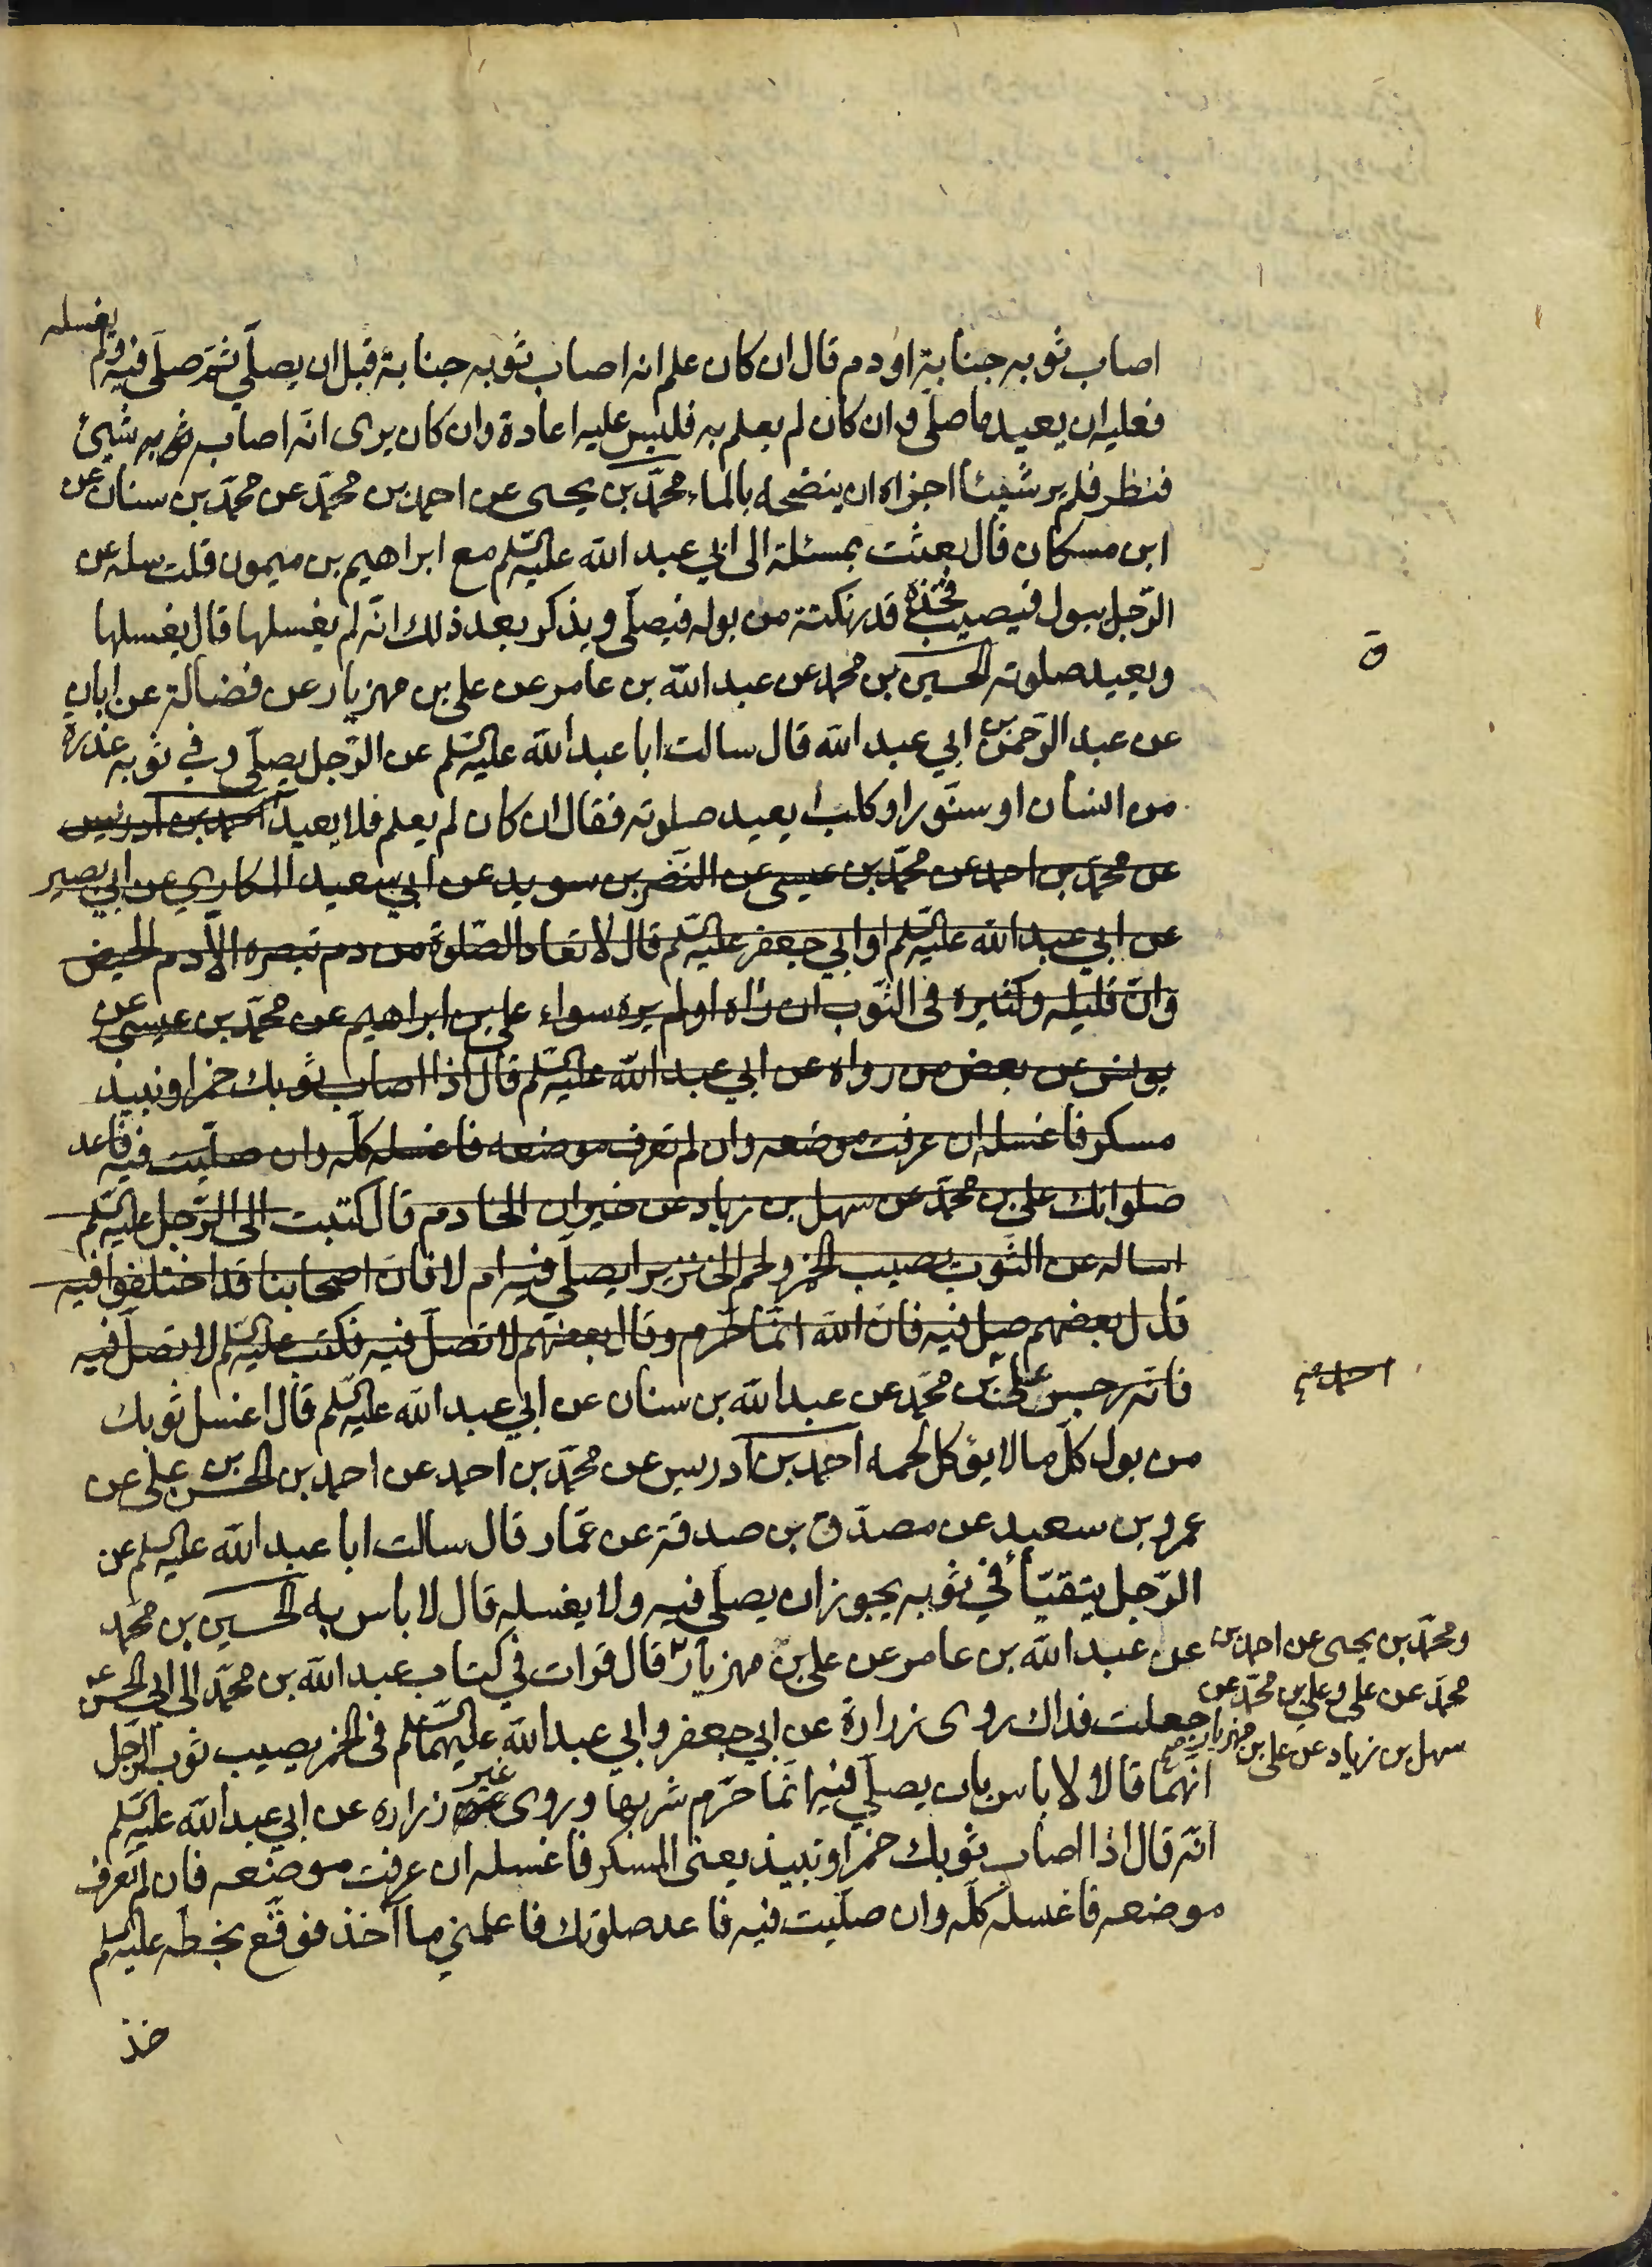 اصاب ثوبه جنابة او دم قال ان كان علم انه اصاب ثوبه جنابة قبل ان يصلّي ثمّ صلّى فيه ولم يغسله
فعليه ان يعيد ما صلّى وان كان لم يعلم به فليس عليه اعادة وان كان يرى انّه اصاب ثوبه شيئ
فنظر فلم ير شيئا اجزاه ان ينضحه بالماء محمّد بن يحيى عن احمد بن محمّد عن محمّد بن سنان عن
ابن مسكان قال بعثت بمسئلة الى ابي عبد الله عليه السّلم مع ابراهيم بن ميمون قلت سله عن
الرّجل يبول فيصيب فخذه قدر نكتة من بوله فيصلّى ويذكر بعد ذلك انّه لم يغسلها قال يغسلها
ويعيد صلوته الحسين بن محمد عن عبد الله بن عامر عن على بن مهزيار عن فضالة عن ابان
عن عبد الرّحمن بن ابي عبد الله قال سالت ابا عبد الله عليه السّلم عن الرّجل يصلّى وفي ثوبه عذرة
من انسان او سنّور او كلب ايعيد صلوته فقال ان كان لم يعلم فلا يعيد احمد بن ادريس
عن محمّد بن احمد عن محمّد بن عيسى عن النّضر بن سويد عن ابي سعيد المكاري عن ابي بصير
عن ابي عبد الله عليه السّلم او ابي جعفر عليه السّلم قال لا تعاد الصّلوة من دم تبصره الّا دم الحيض
وانّ قليله وكثيره فى الثّوب ان راه او لم يره سواء على بن ابراهيم عن محمّد بن عيسى عن
يونس عن بعض من رواه عن ابي عبد الله عليه السّلم قال اذا اصاب ثوبك خمر او نبيذ
مسكر فاغسله ان عرفت موضعه وان لم تعرف موضعه فاغسله كلّه وان صلّيت فيه فاعد
صلواتك على بن محمّد عن سهل بن زياد عن خيران الخادم قال كتبت الى الرّجل عليه السّلم
اساله عن الثّوب يصيب الخمر ولحم الخنزير ايصلّي فيه ام لا فانّ اصحابنا قد اختلفوا فيه
قال بعضهم صل فيه فانّ الله انّما حرّم وقال بعضهم لا تصلّ فيه فكتب عليه السّلم لا تصلّ فيه
فانّه رجس على بن محمّد عن عبد الله بن سنان عن ابي عبد الله عليه السّلم قال اغسل ثوبك
من بول كلّ ما لا يؤكل لحمه احمد بن ادريس عن محمّد بن احمد عن احمد بن الحسن بن على عن
عمرو بن سعيد عن مصدّق بن صدقة عن عمّار قال سالت ابا عبد الله عليه السلم عن
الرّجل يتقيّأ في ثوبه يجوز ان يصلّى فيه ولا يغسله قال لا باس به الحسين بن محمّد
عن عبد الله بن عامر عن على بن مهزيار قال قرات في كتاب عبد الله بن محمّد الى ابي الحسن
جعلت فداك روى زرارة عن ابي جعفر وابي عبد الله عليهما السّلم فى الخمر يصيب ثوب الرّجل
انّهما قالا لا باس بان يصلّي فيه انّما حرّم شربها وروى غير زراره عن ابي عبد الله عليه السّلم
انّه قال اذا اصاب ثوبك خمر او نبيذ يعنى المسكر فاغسله ان عرفت موضعه فان لم تعرف
موضعه فاغسله كلّه وان صلّيت فيه فاعد صلوتك فاعلمني ما آخذ فوقّع بخطّه عليه السلم
خذ
ومحمّد بن يحيى عن احمد بن
محمّد عن على وعلى بن محمّد عن
سهل بن زياد عن على بن مهزيار